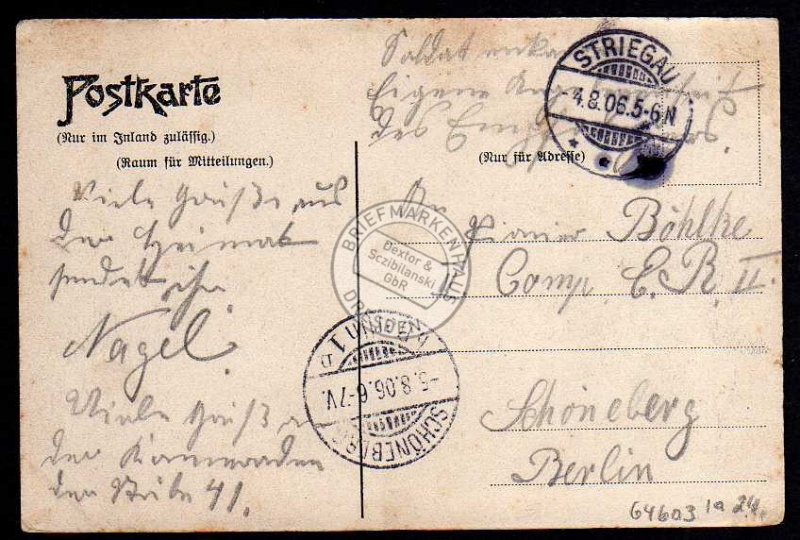 Soldatenkarte
Eigene Angelegenheit
des Empfängers.
STRIEGAU
-4.8.06.5-6N
Postkarte
(Nur im Inland zulässig.)
(Raum für Mitteilungen.)
(Nur für Adresse)
Viele Grüße aus
der Heimat
sendet ihr
Nagel.
Viele Grüße an
den Kameraden
der Stube 41.
An Pionier Böhlke
Comp. E. R. II.
Schöneberg
Berlin
BRIEFMARKENHAUS
Dextor &
Sczibilanski
GbR
DRESDEN
SCHÖNEBERG
1
-5.8.06.6-7V.
64603 1a 24.